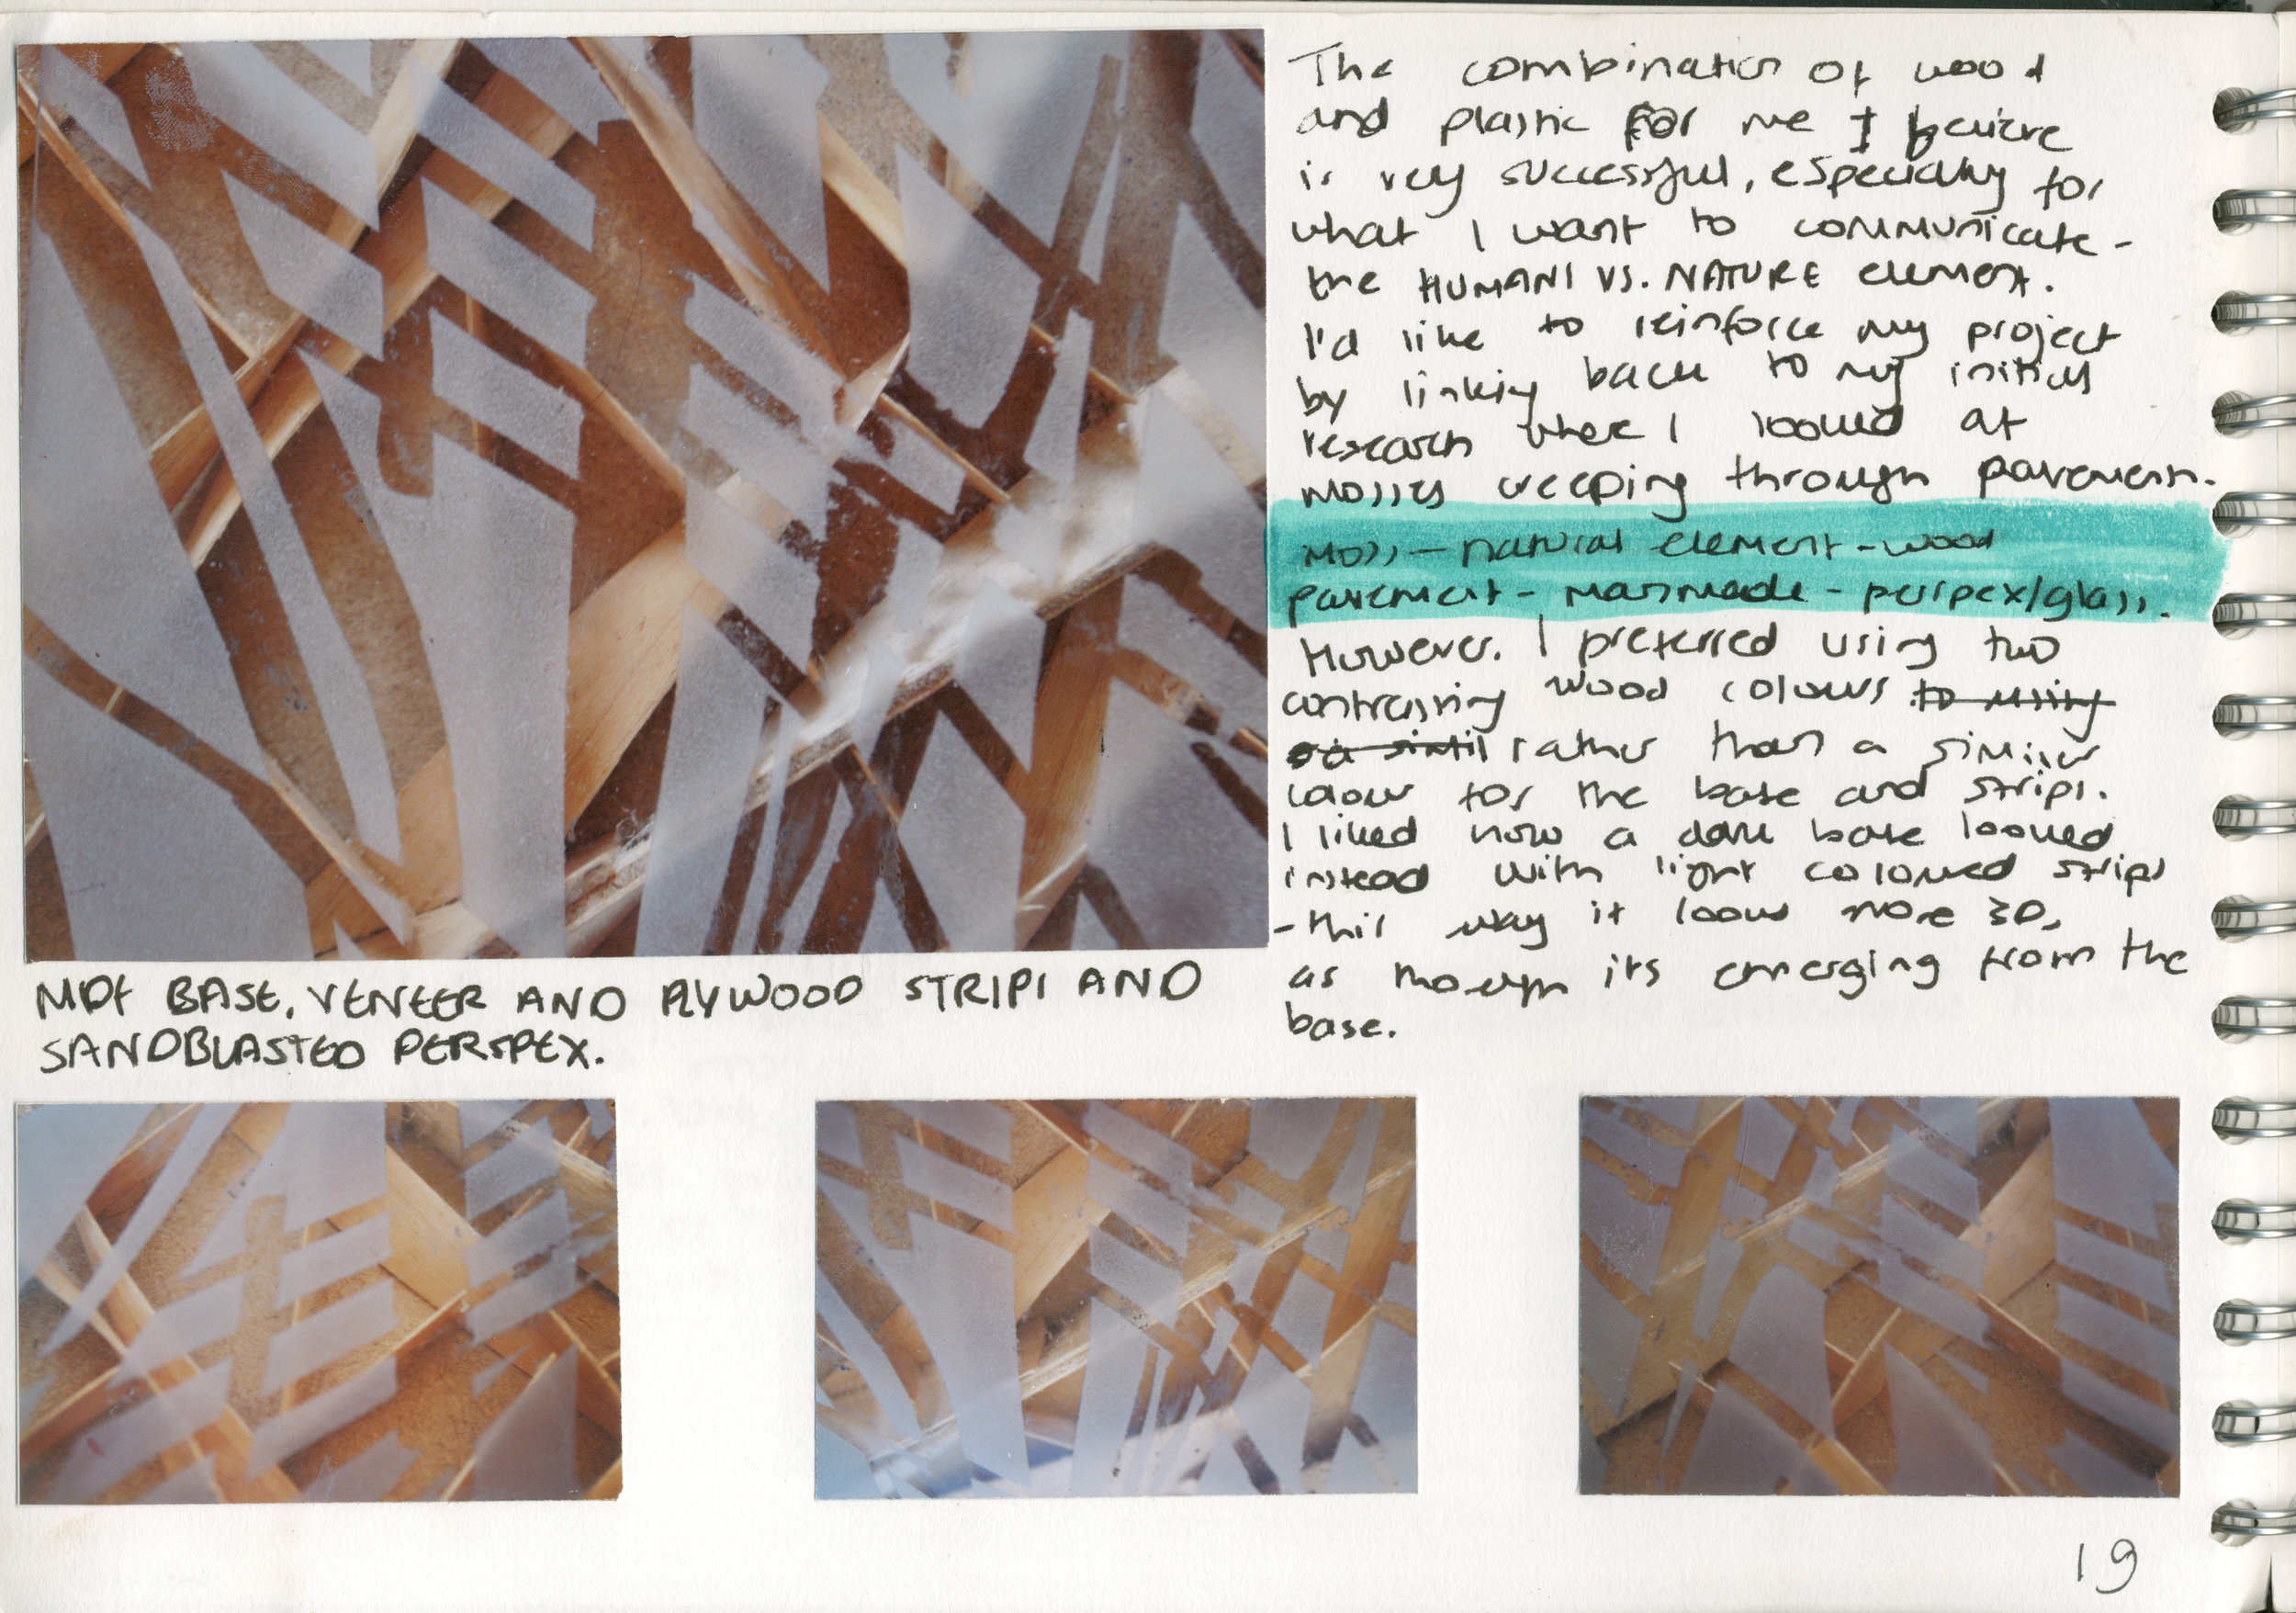 The combination of wood
and plastic for me I believe
is very successful, especially for
what I want to communicate -
the HUMANS VS. NATURE element.
I'd like to reinforce my project
by linking back to my initial
research where I looked at
mosses creeping through pavement.
Moss - natural element - wood
pavement - manmade - perspex/glass.
However, I preferred using two
contrasting wood colours to using
rather than a similar
colour for the base and strips.
I liked how a dark base looked
instead with light coloured strips
- this way it looks more 3D,
as though its emerging from the
base.
MDF BASE, VENEER AND PLYWOOD STRIPS AND
SANDBLASTED PERSPEX.
19